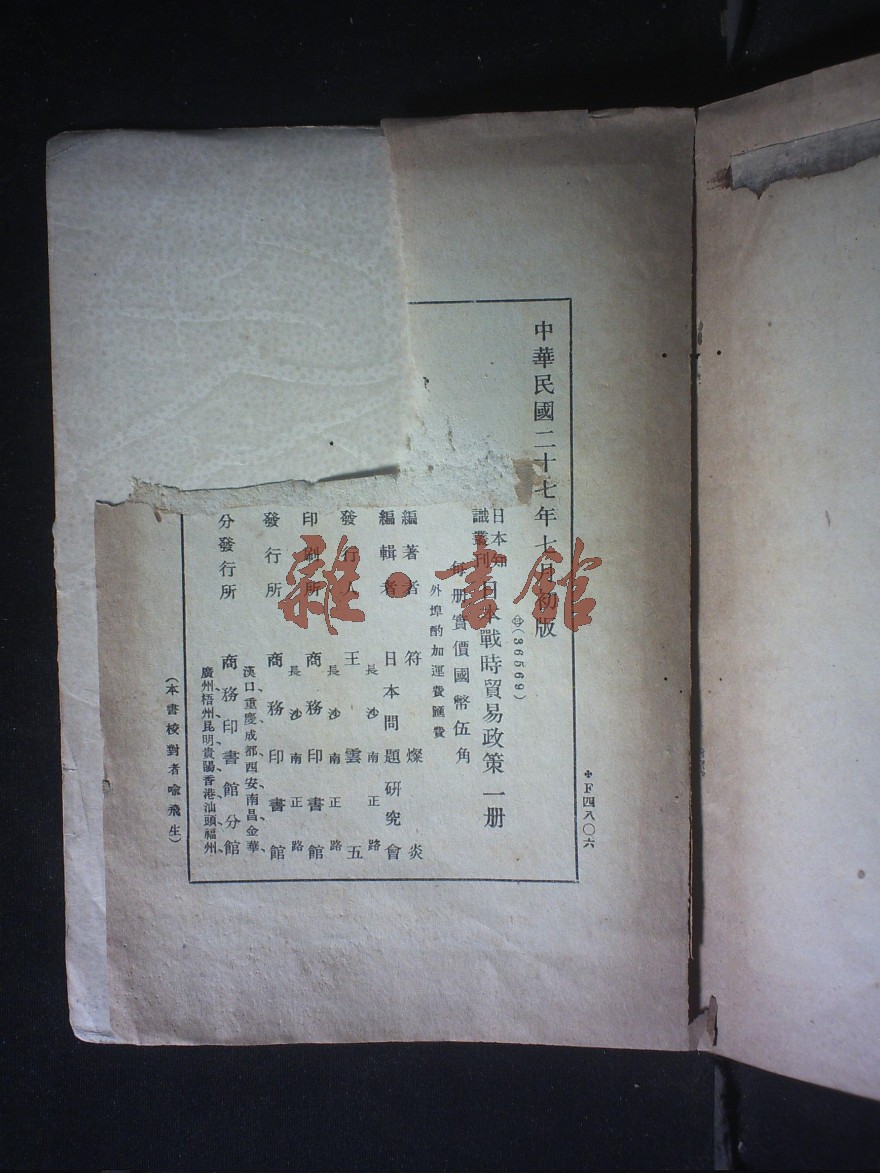 中華民國二十七年七月初版
✠F四八〇六
(36569)
日本知識叢刊 日本戰時貿易政策一册
每册實價國幣伍角
外埠酌加運費匯費
編著者 符燦炎
編輯者 日本問題研究會
長沙南正路
發行人 王雲五
長沙南正路
印刷所 商務印書館
長沙南正路
發行所 商務印書館
漢口、重慶、成都、西安、南昌、金華、
分發行所 商務印書館分館
廣州、梧州、昆明、貴陽、香港、汕頭、福州、
(本書校對者喻飛生)
雜·書館